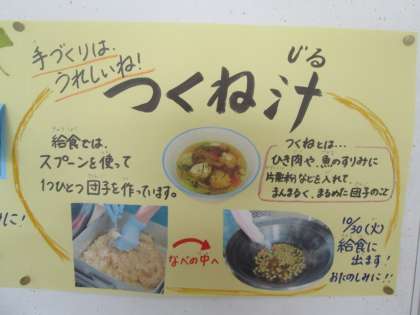 手づくりは、
うれしいね!
じる
つくね汁
きゅうしょく
給食では、
スプーンを使って
1つひとつ団子を作っています。
つくねとは…
ひき肉や、魚のすりみに
片栗粉などを入れて、
まんまるく、まるめた団子のこと
なべの中へ
10/30(火)
給食に
出ます!
おたのしみに!!
に!